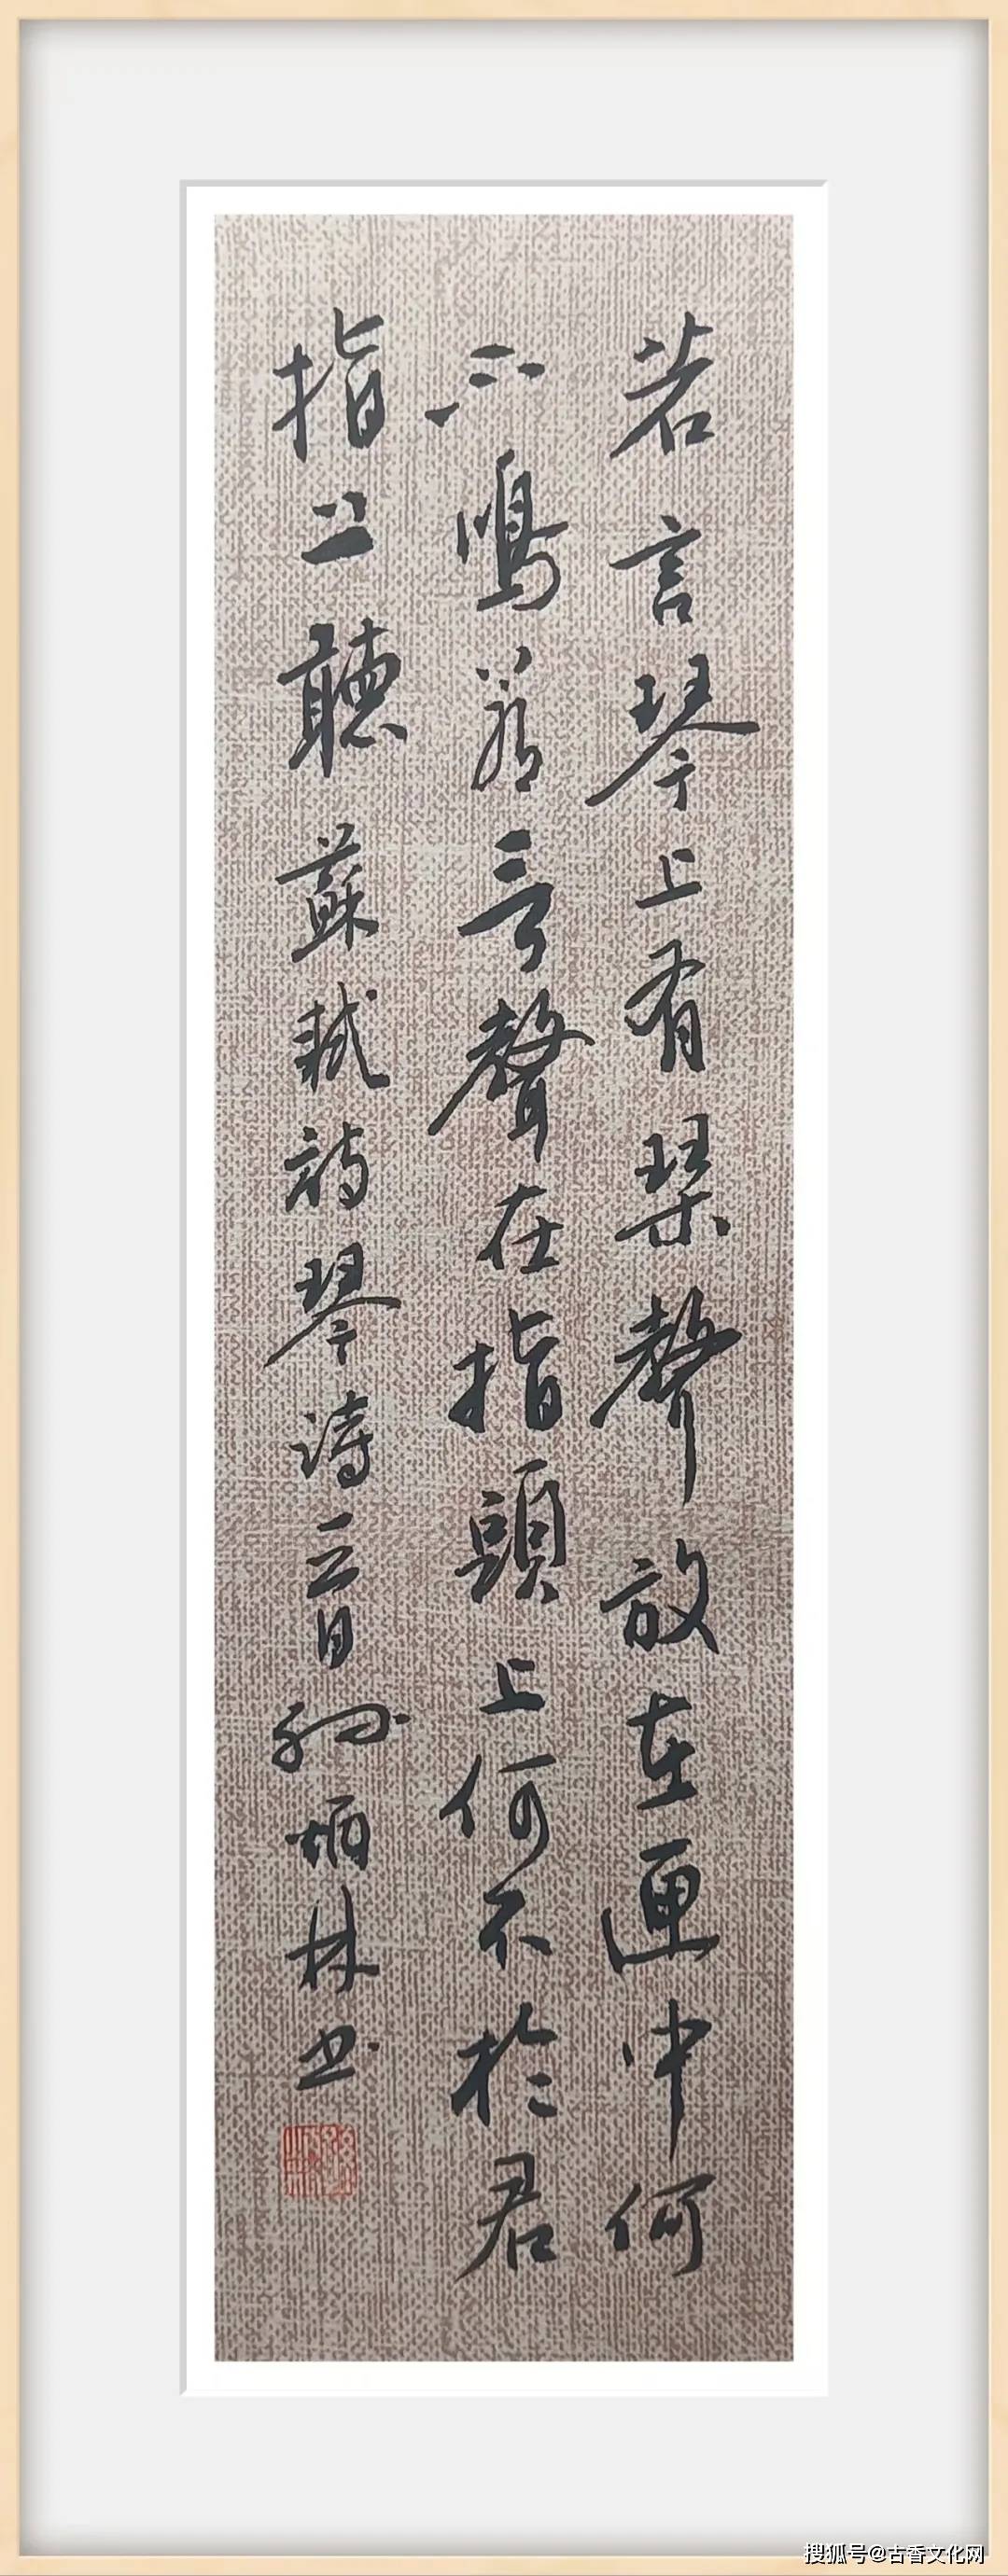 若言琴上有琹聲放在匣中何
不鳴若言聲在指頭上何不於君
指上聽 蘇軾詩琴詩一首 孫炳林书
搜狐号@古香文化网